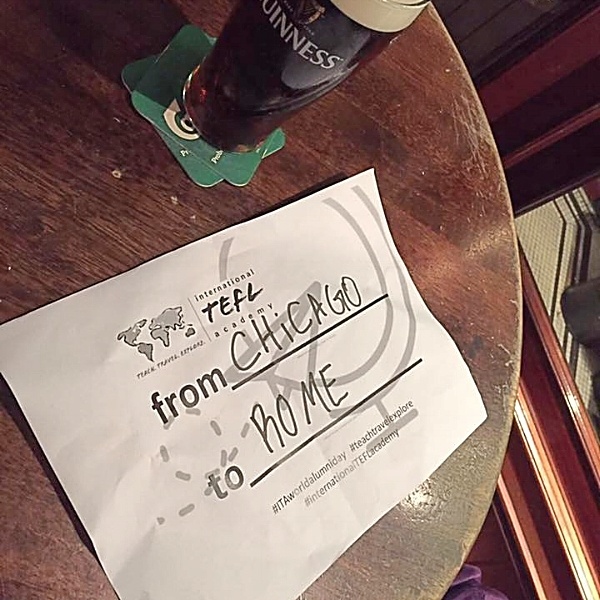 GUINNESS
international
TEFL
academy
TEACH. TRAVEL. EXPLORE.
from CHiCAGO
to ROME
#ITAworldalumniday #teachtravelexplore
#internationalTEFLacademy